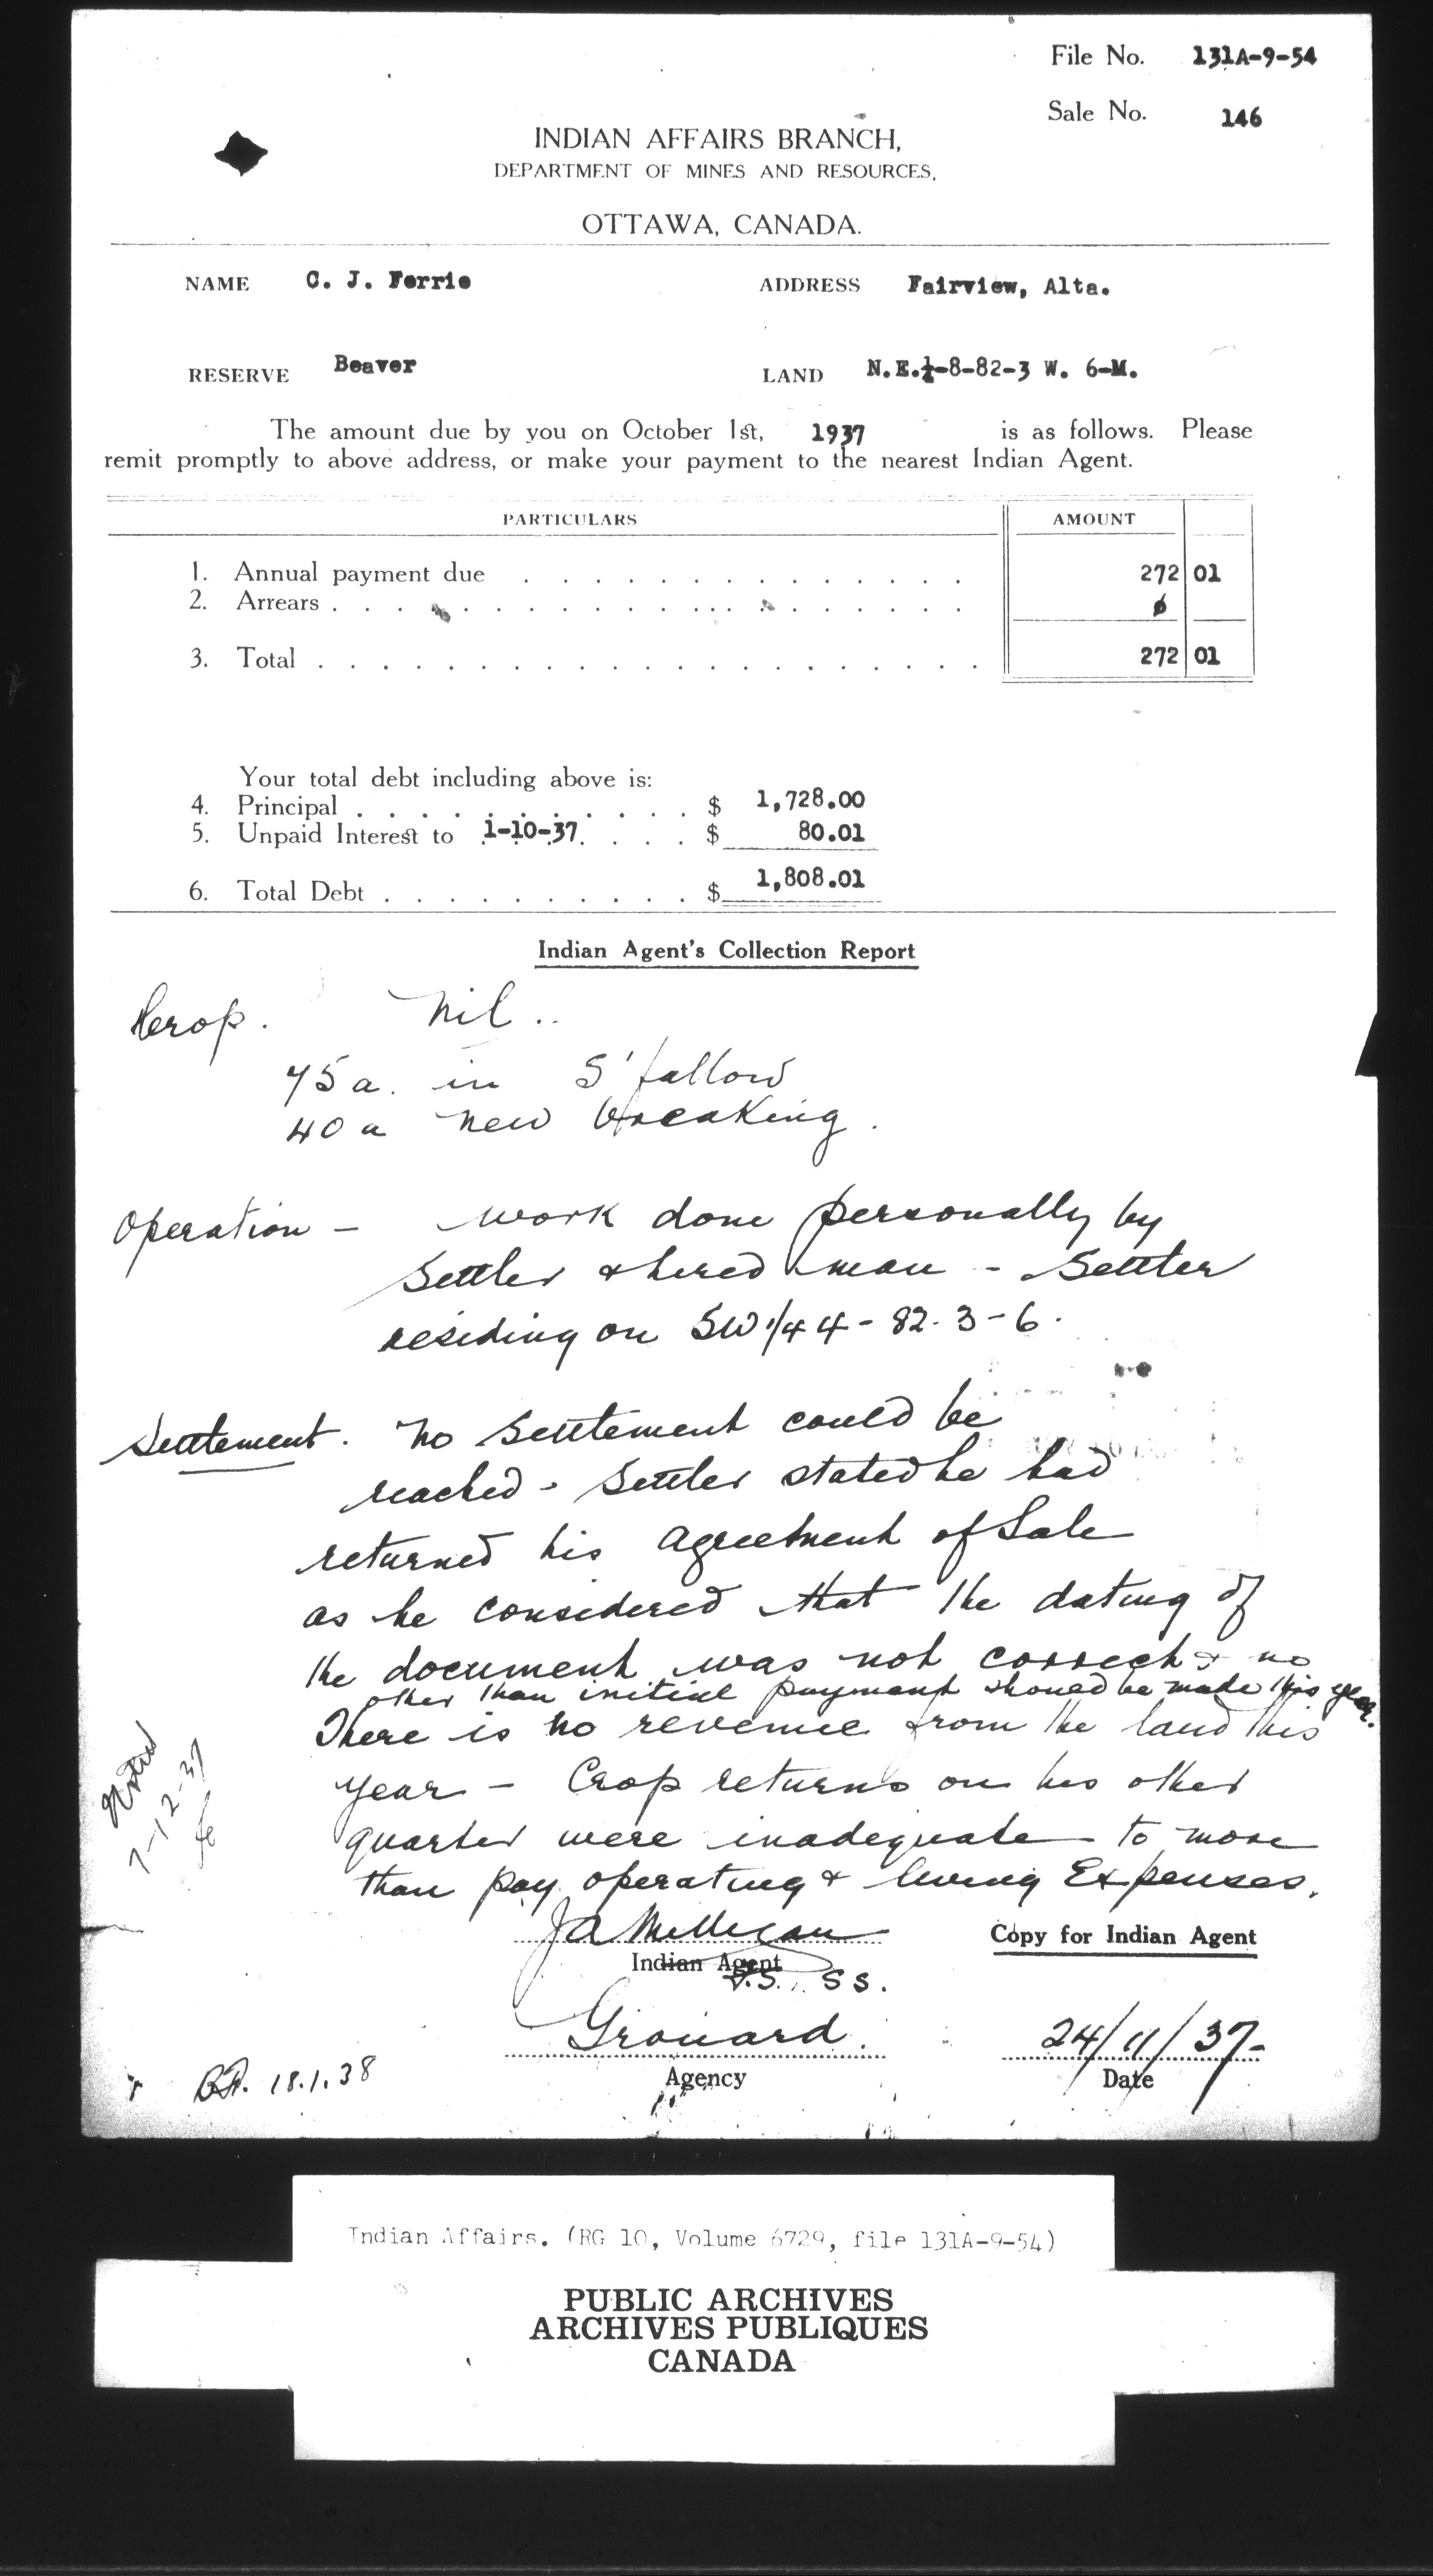 File No. 131A-9-54
Sale No. 146
INDIAN AFFAIRS BRANCH,
DEPARTMENT OF MINES AND RESOURCES,
OTTAWA, CANADA.
NAME C. J. Ferrie ADDRESS Fairview, Alta.
RESERVE Beaver LAND N.E.¼-8-82-3 W. 6-M.
The amount due by you on October 1st, 1937 is as follows. Please
remit promptly to above address, or make your payment to the nearest Indian Agent.
PARTICULARS AMOUNT
1. Annual payment due 272 01
2. Arrears
3. Total 272 01
Your total debt including above is:
4. Principal $ 1,728.00
5. Unpaid Interest to 1-10-37 $ 80.01
6. Total Debt $ 1,808.01
Indian Agent's Collection Report
Crop. Nil..
75 a. in S'fallow
40 a new breaking.
Operation - work done personally by
Settler & hired man - Settler
residing on SW 1/4 4-82-3-6.
Settlement. No settlement could be
reached - Settler stated he had
returned his agreement of Sale
as he considered that the dating of
the document was not correct & no
other than initial payment should be made this year.
There is no revenue from the land this
year - Crop returns on his other
quarter were inadequate to more
than pay operating & living Expenses.
Noted
7-12-37
J A Milligan
Indian Agent
S.S.
Copy for Indian Agent
Grouard.
Agency
24/11/37-
Date
18.1.38
Indian Affairs. (RG 10, Volume 6729, file 131A-9-54)
PUBLIC ARCHIVES
ARCHIVES PUBLIQUES
CANADA